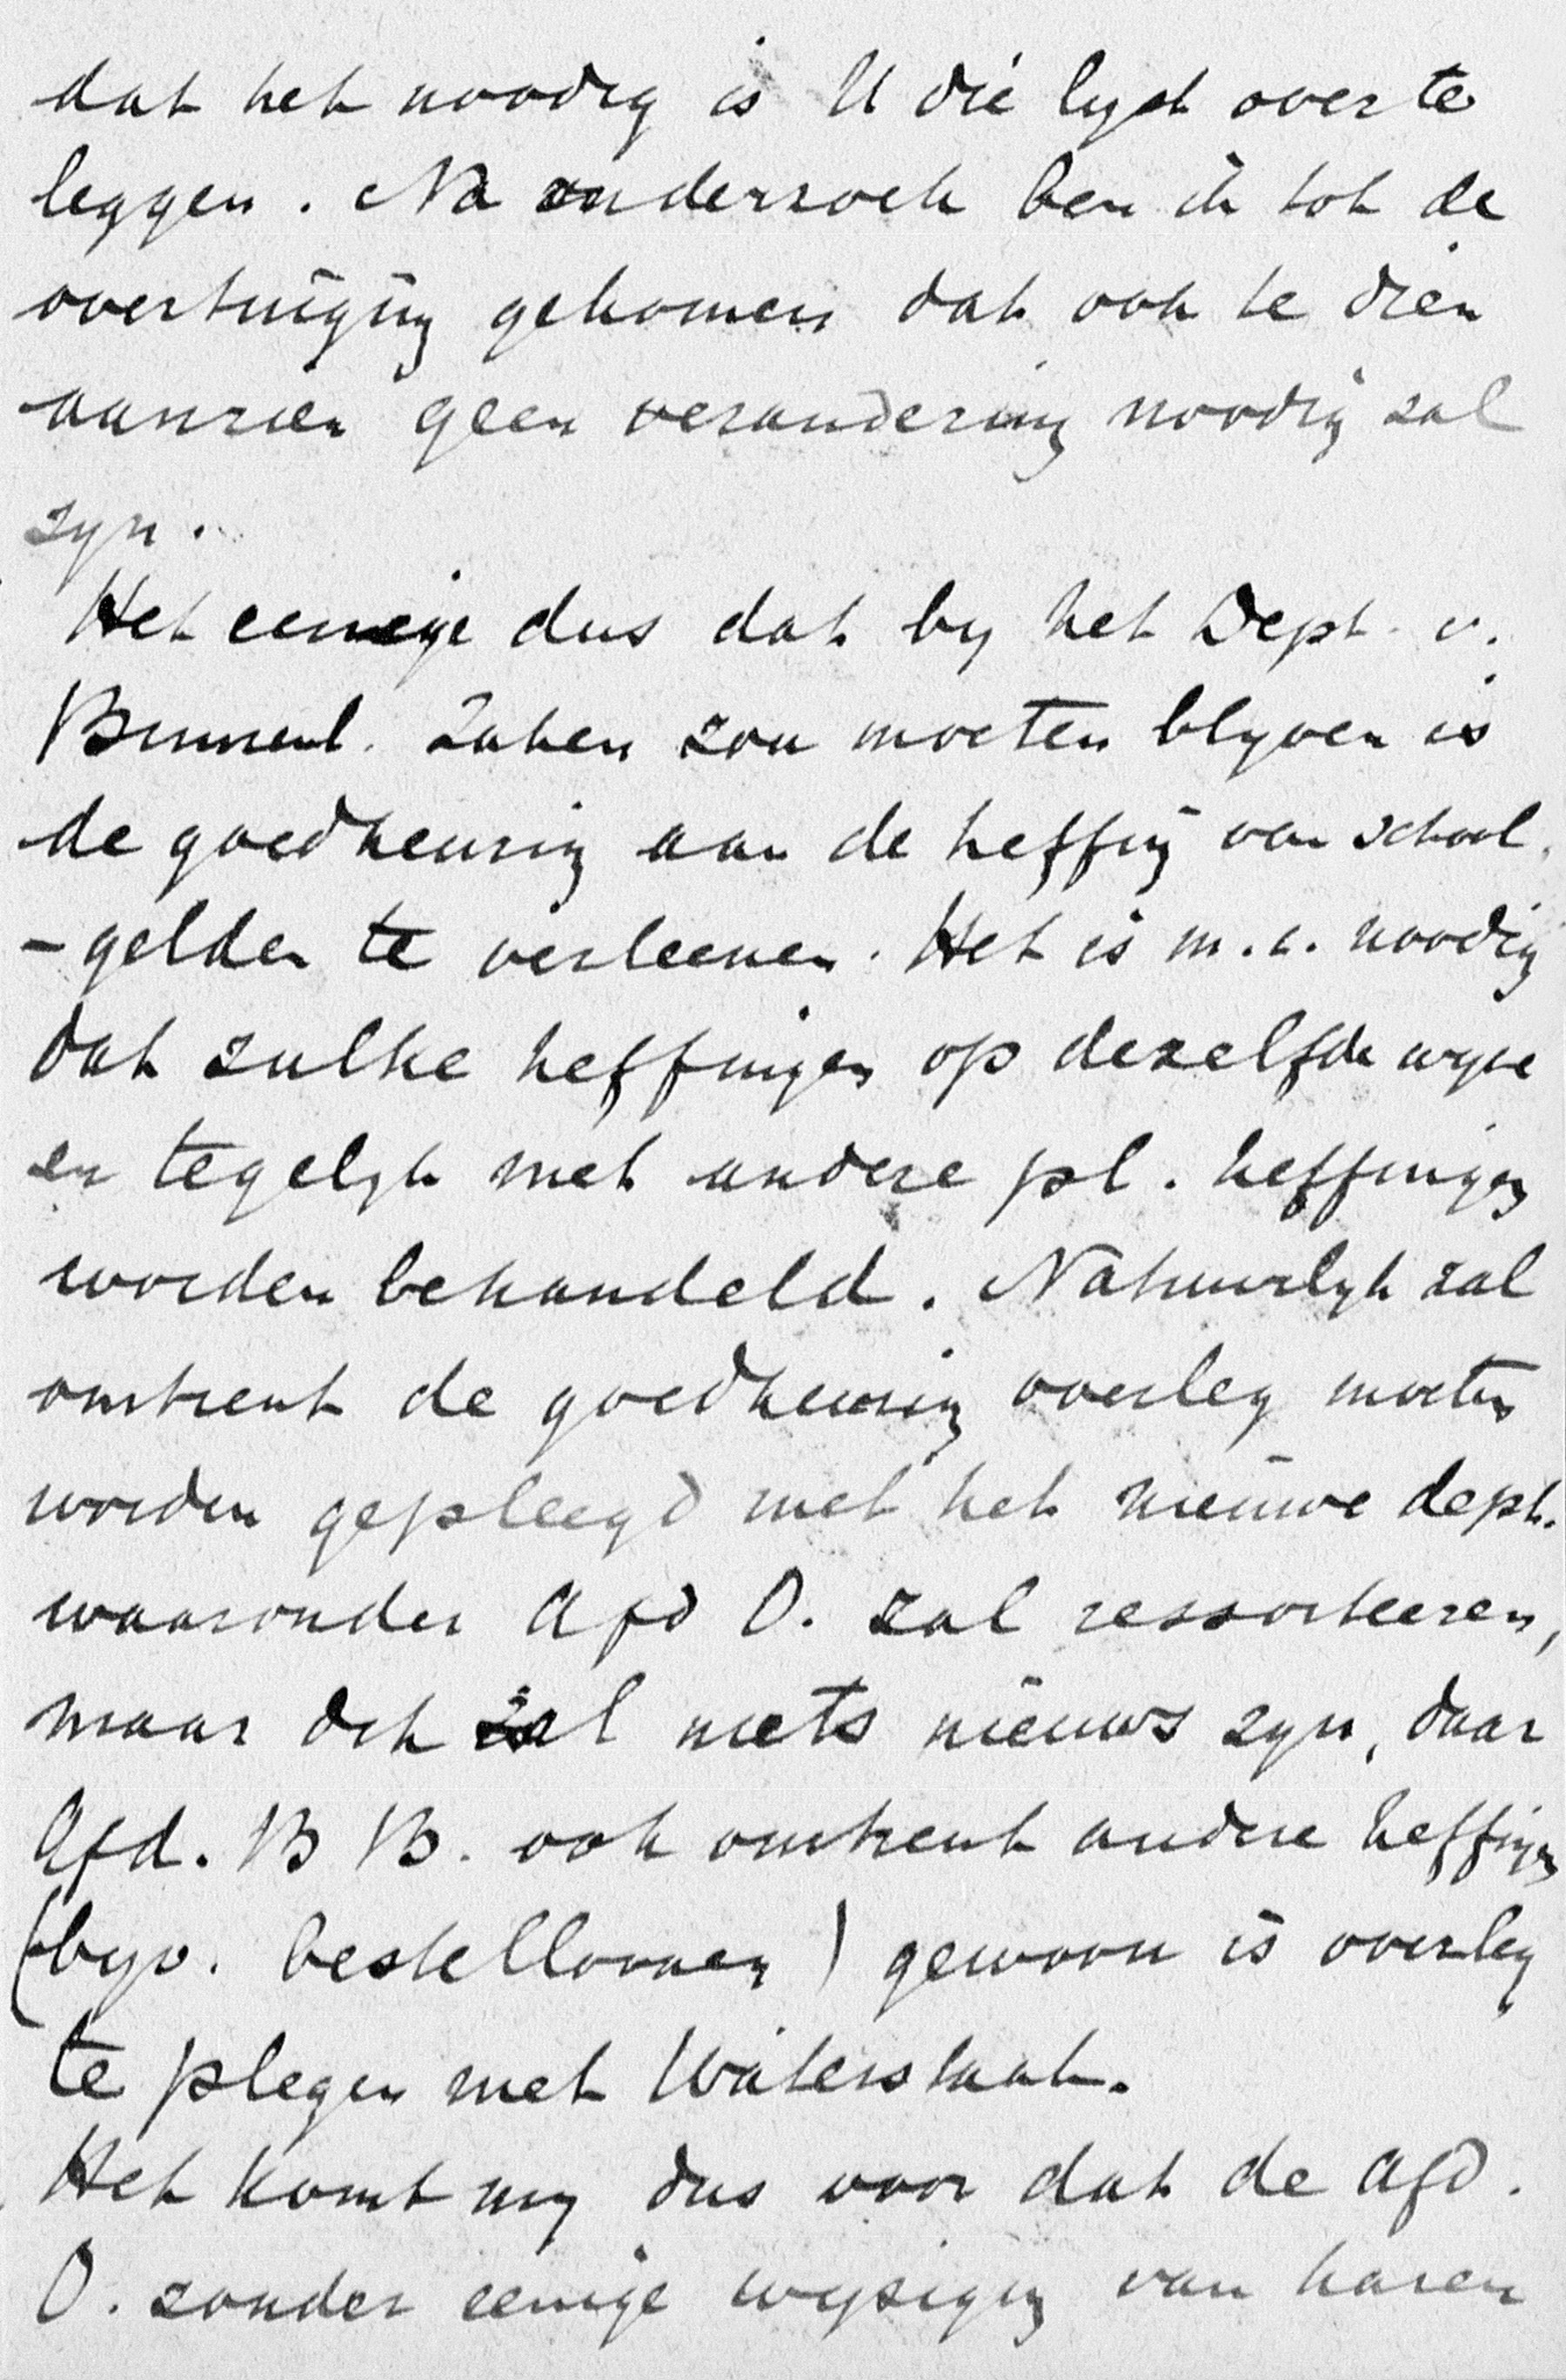 dat het noodig is U die lyst over te
leggen. Na onderzoek ben ik tot de
overtuiging gekomen dat ook te dien
aanzien geen verandering noodig zal
zyn.
Het eenige dus dat by het Dept. v.
Binnenl. Zaken zou moeten blyven is
de goedkeuring aan de heffing van school
-gelden te verleenen. Het is m.i. noodig
dat zulke heffingen op dezelfde wyse
en tegelyk met andere pl. heffingen
worden behandeld. Natuurlyk zal
omtrent de goedkeuring overleg moeten
worden gepleegd met het nieuwe dept.
waaronder Afd O. zal ressorteeren,
maar dit zal niets nieuws zyn, daar
Afd. B B. ook omtrent andere heffingen
(byv. bestelloonen) gewoon is overleg
te plegen met Waterstaat.
Het komt my dus voor dat de Afd.
O. zonder eenige wysiging van haren